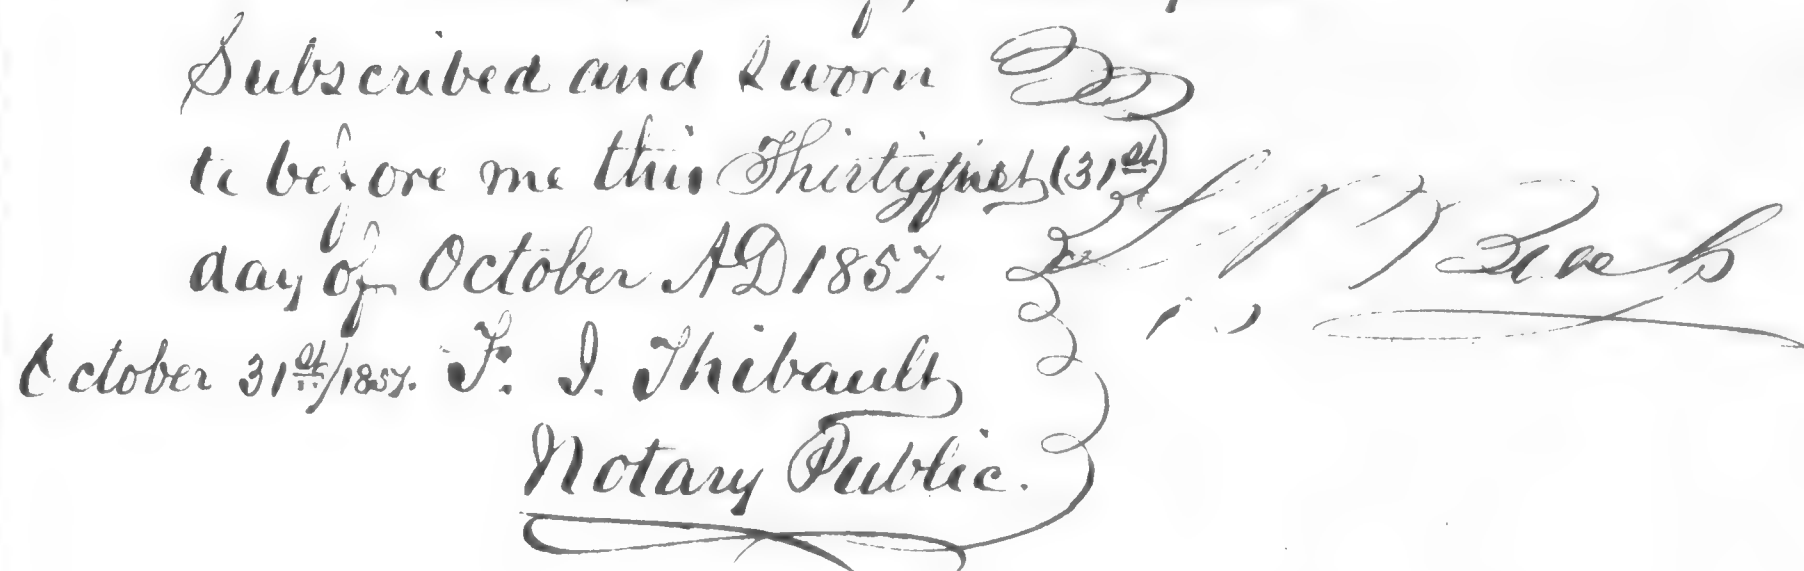 Subscribed and Sworn
to before me this Thirtyfirst (31st)
day of October AD 1857.
October 31st/1857. F. I. Thibault
Notary Public.